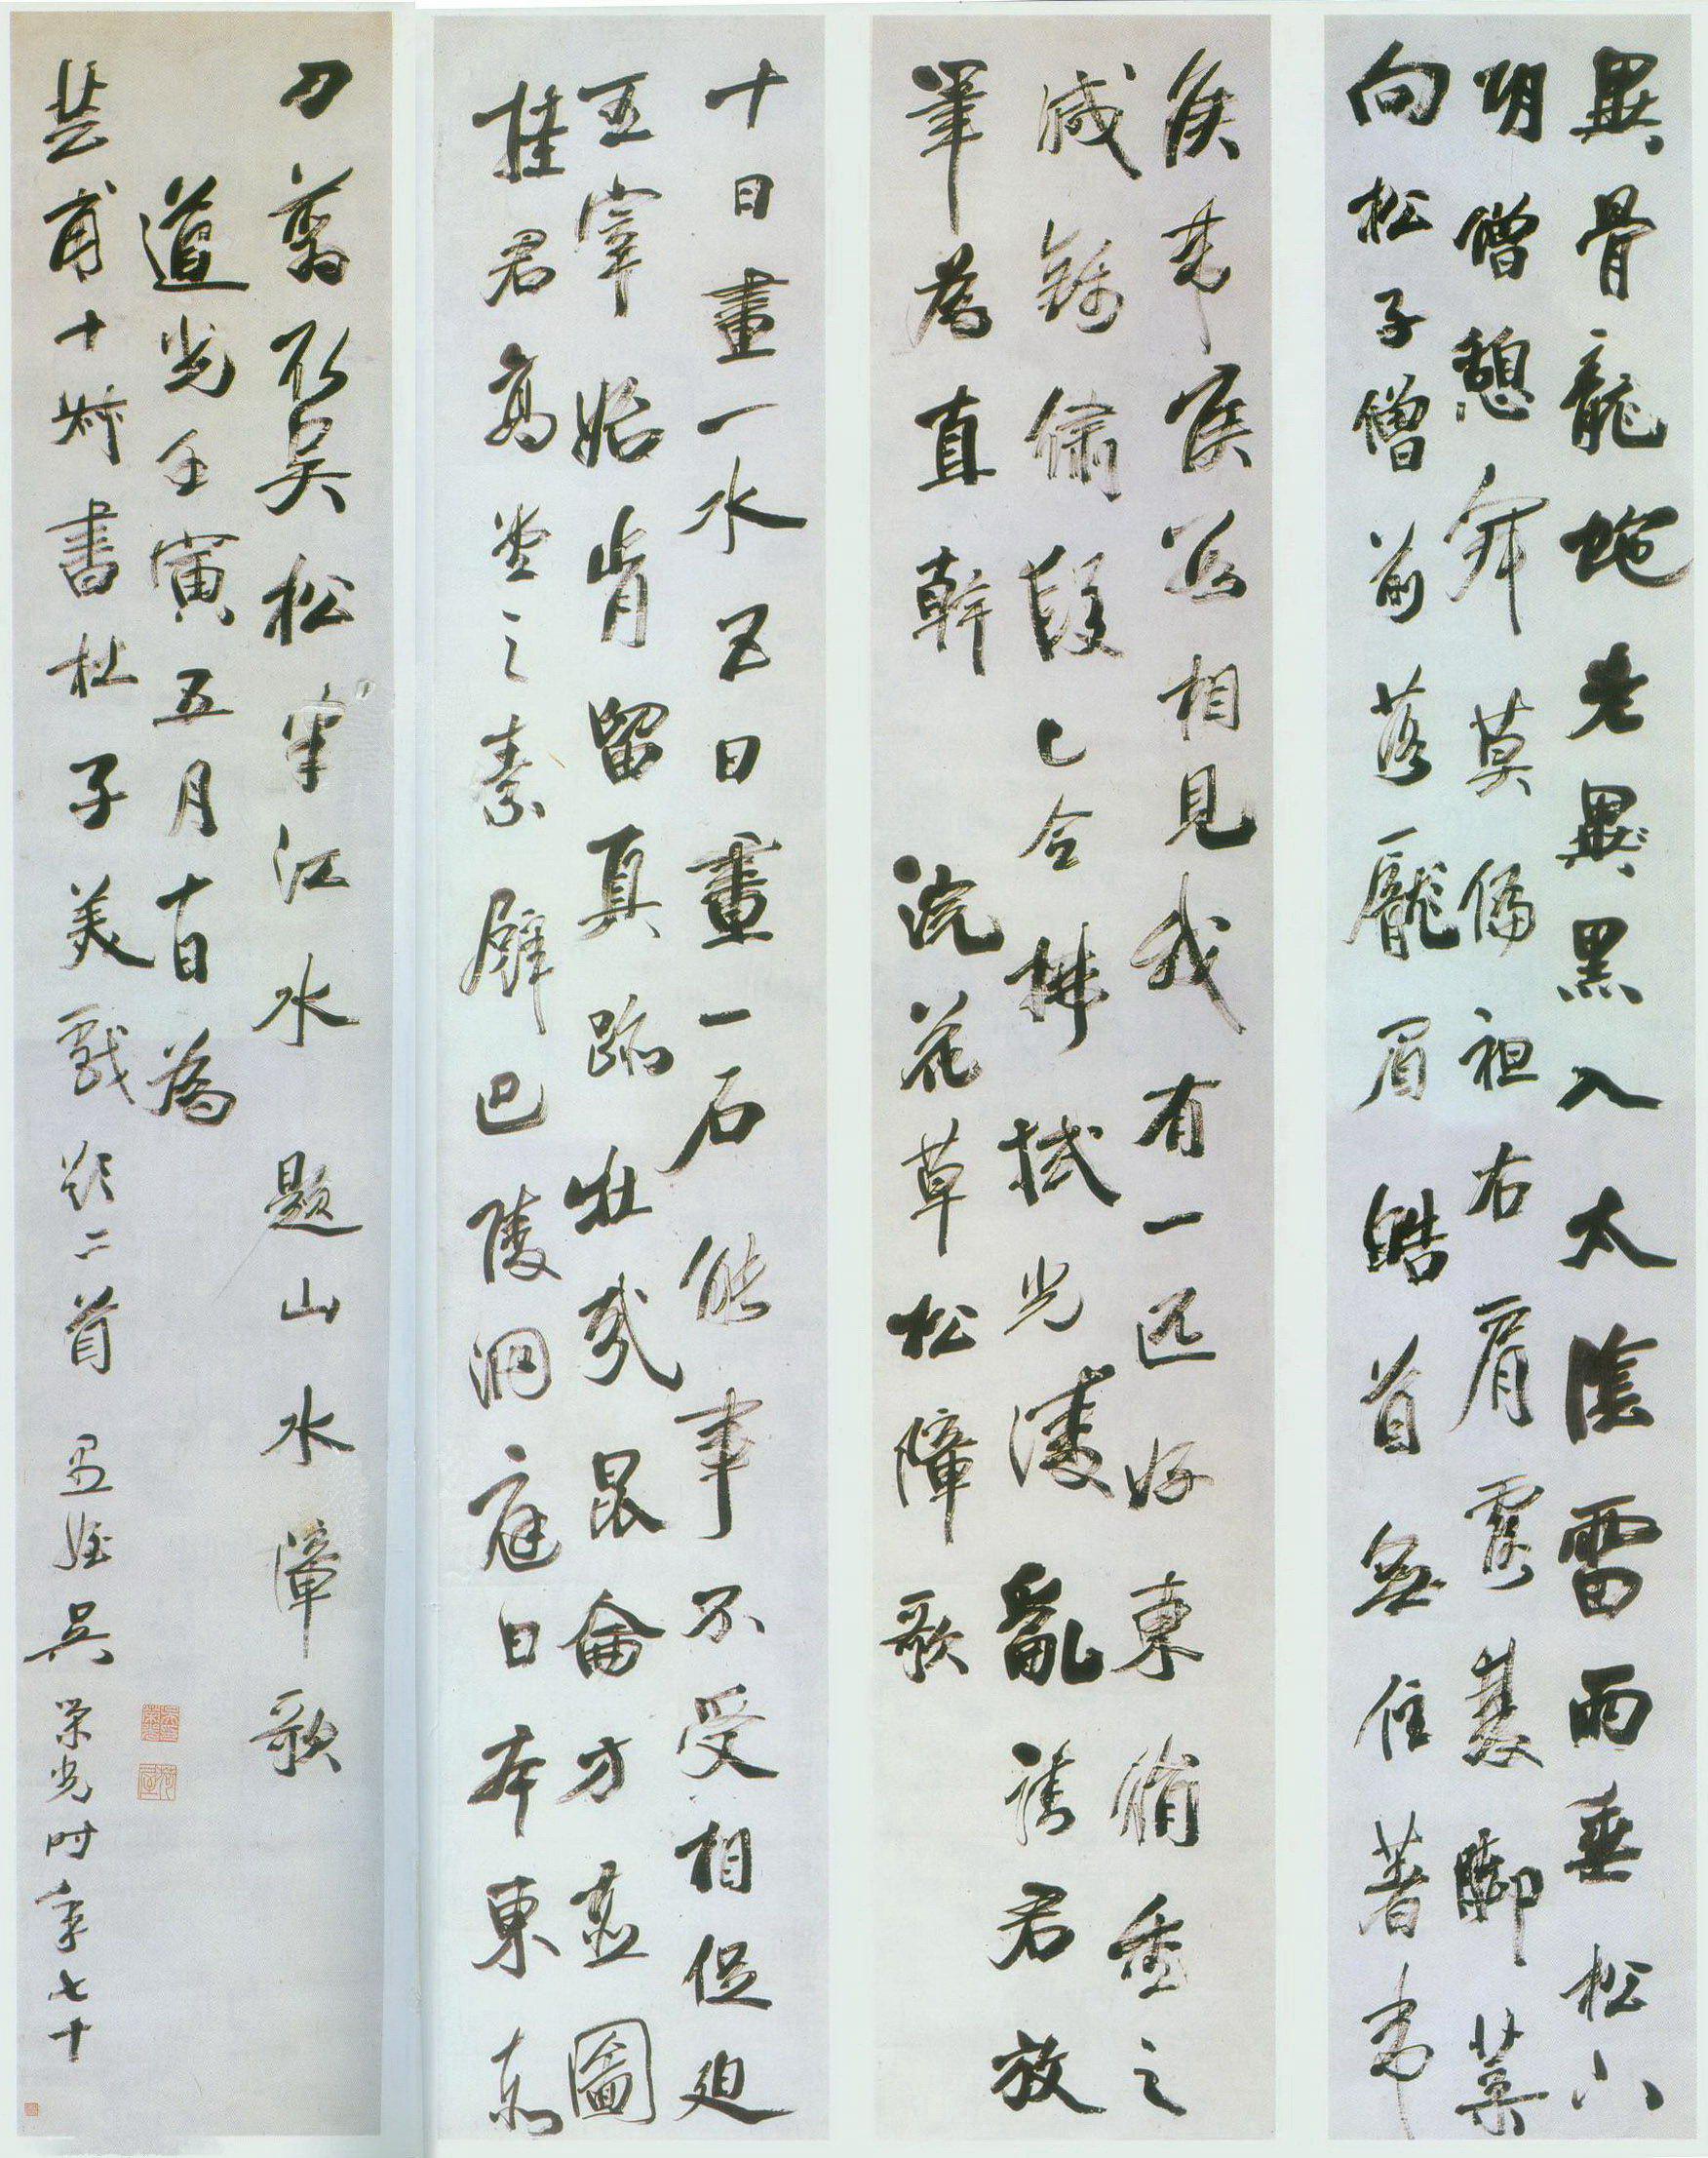 異骨龍虵老異黑入太陰雷雨垂松下
胡僧憩寂莫偏袒右肩露雙脚葉
向松子僧前落龐眉皓首無住著韋
侯韋侯數相見我有一匹好東絹重之
減錦繡段已令拂拭光淩亂請君放
筆為直幹 浣花草松障歌
十日畫一水五日畫一石能事不受相促迫
王宰始肯留真跡壯哉昆侖方壺圖
挂君高堂之素壁巴陵洞庭日本東
刀翦取吳松半江水 題山水障歌
道光壬寅五月為
芸甫十書杜子美戲題二首 愚姪吳榮光時年七十